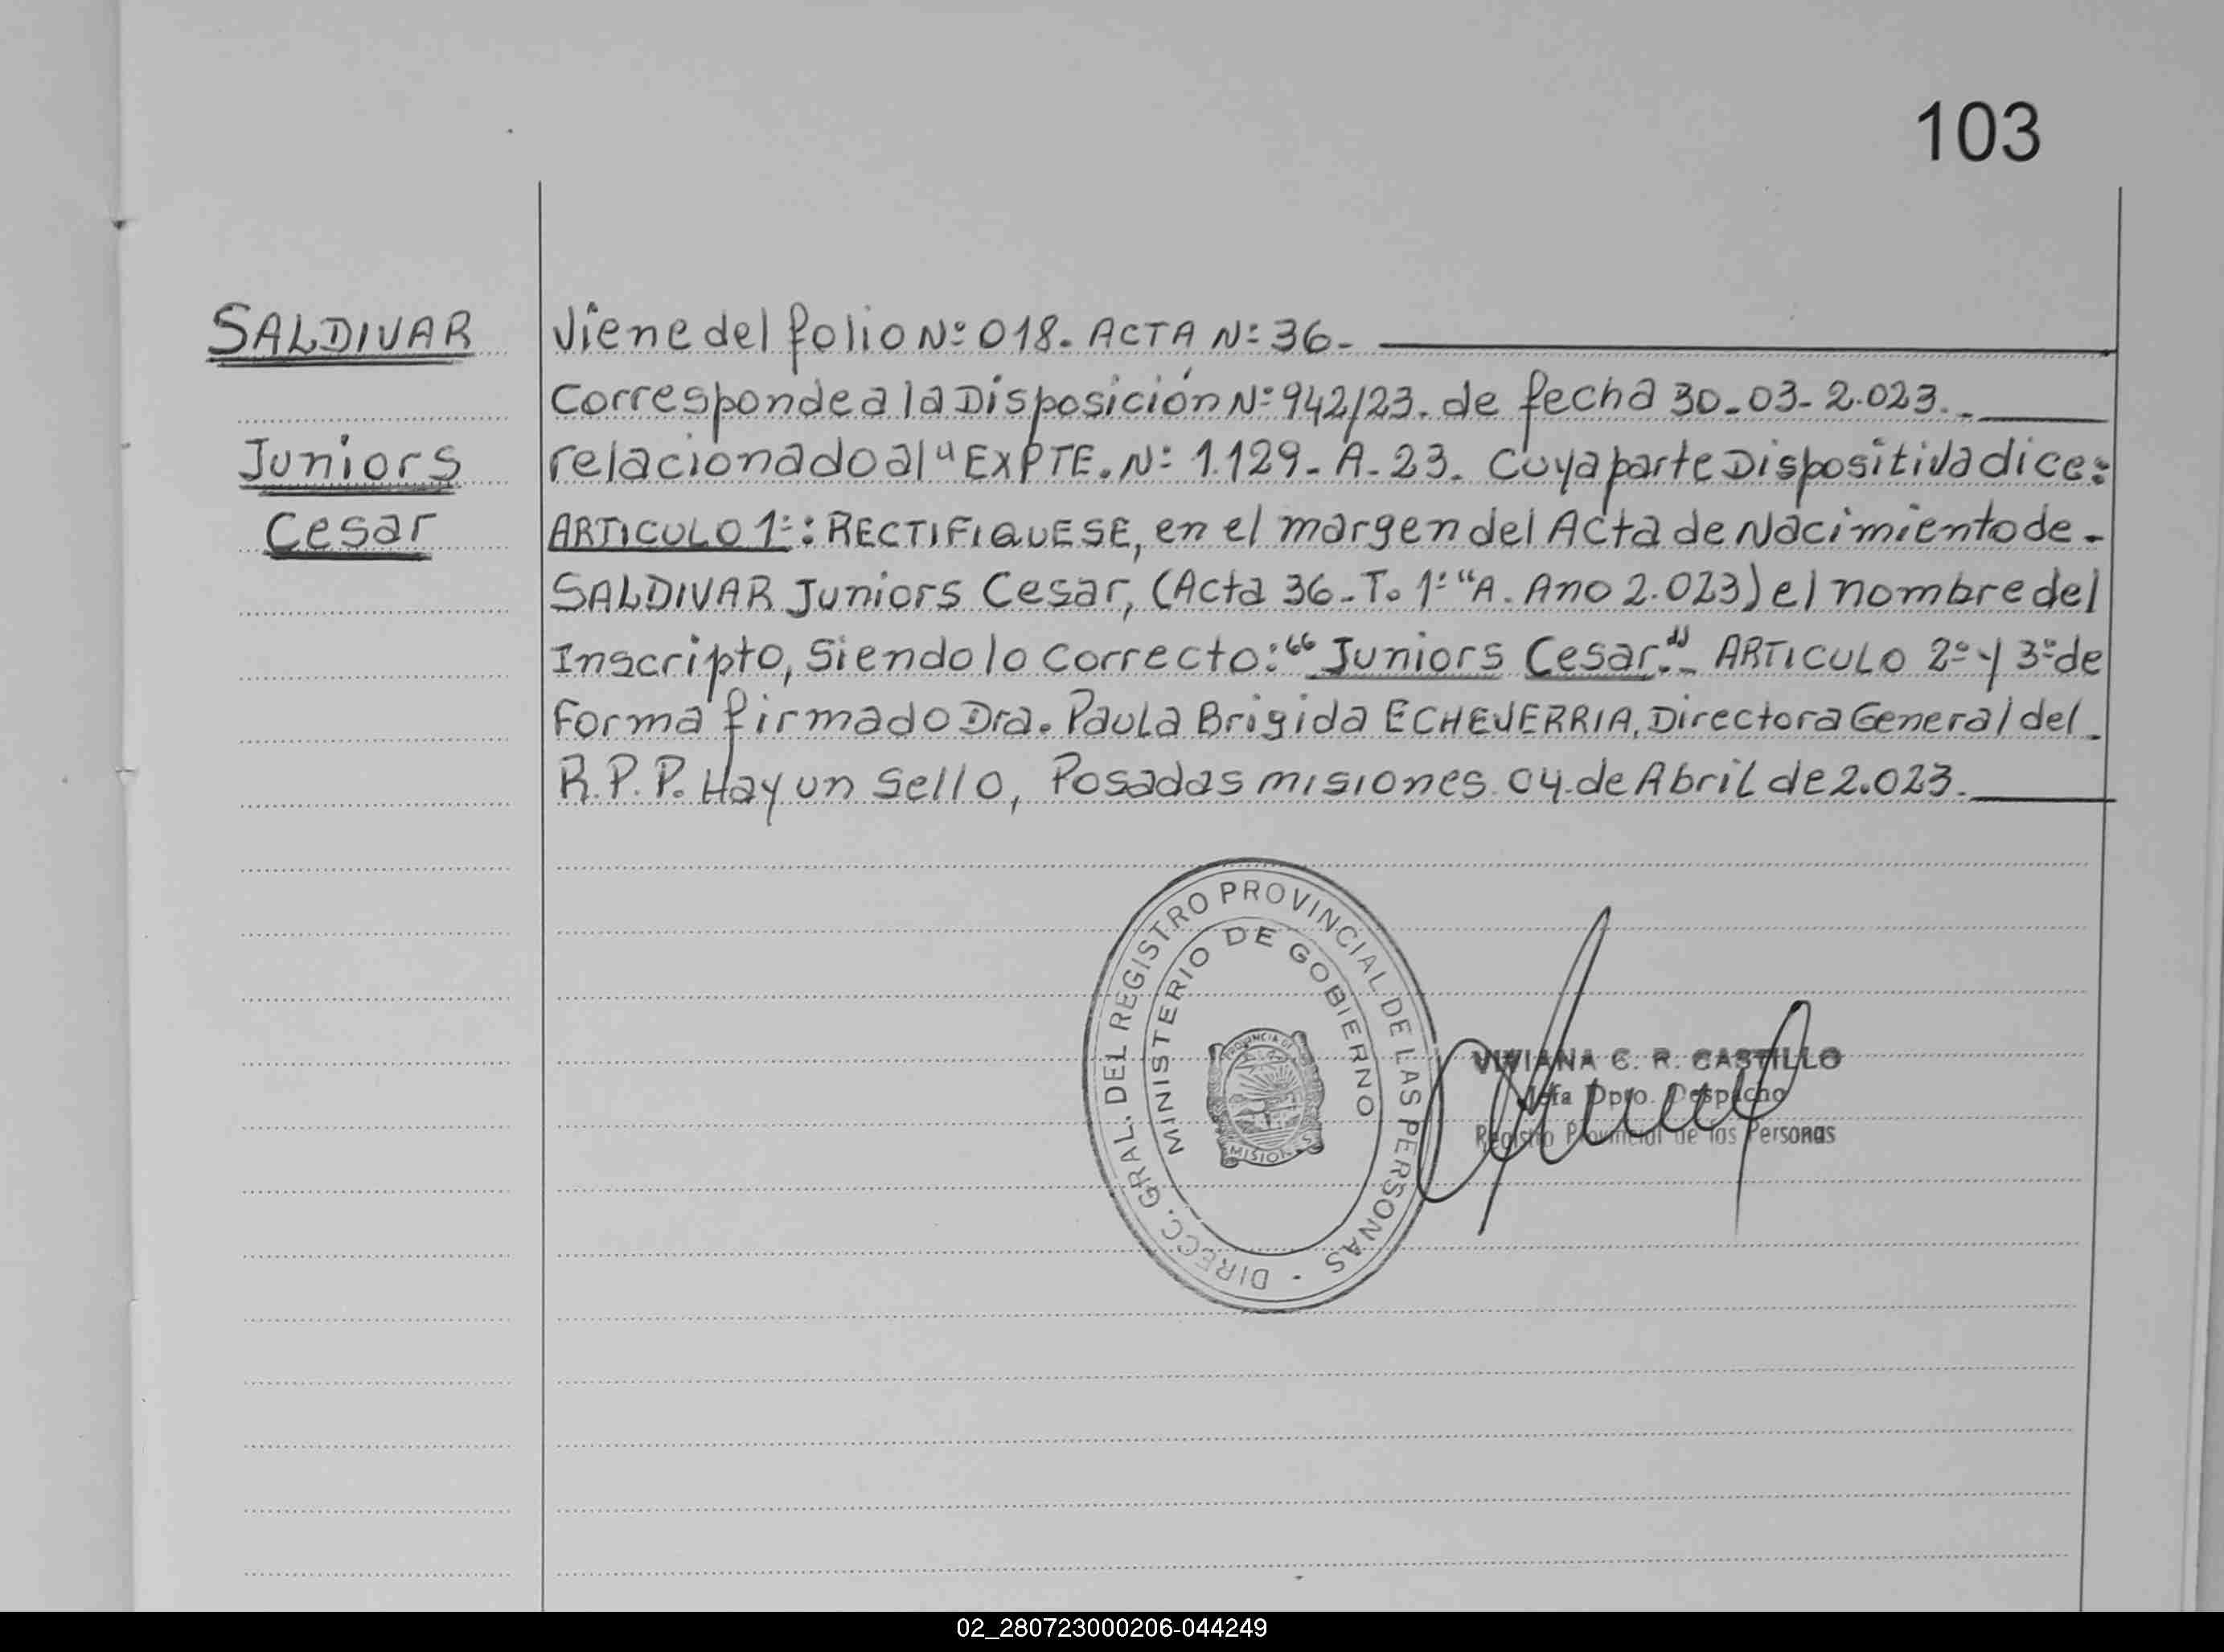 103
SALDIVAR
Juniors
Cesar
Viene del folio Nº 018. ACTA Nº 36.
Corresponde a la Disposición Nº 942/23. de fecha 30-03-2.023.
relacionado al " EXPTE. Nº 1.129-A-23. Cuya parte Dispositiva dice:
ARTICULO 1º: RECTIFIQUESE, en el margen del Acta de Nacimiento de -
SALDIVAR Juniors Cesar, (Acta 36-T. 1º "A. Ano 2.023) el nombre del
Inscripto, Siendo lo correcto: "Juniors Cesar." ARTICULO 2º y 3º de
Forma firmado Dra. Paula Brigida ECHEVERRIA, Directora General del -
R.P.P. Hay un Sello, Posadas misiones 04 de Abril de 2.023.
DIRECC. GRAL. DEL REGISTRO PROVINCIAL DE LAS PERSONAS -
MINISTERIO DE GOBIERNO
PROVINCIA DE
MISIONES
VIVIANA C. R. CASTILLO
Jefa Dpto. Despacho
Registro Provincial de las Personas
02_280723000206-044249